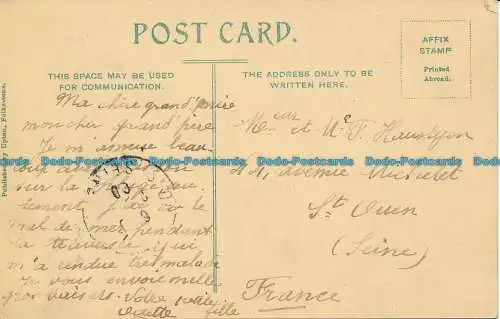 POST CARD.
AFFIX
STAMP
Printed
Abroad.
THIS SPACE MAY BE USED
FOR COMMUNICATION.
THE ADDRESS ONLY TO BE
WRITTEN HERE.
Ma chère grand'mère
mon cher grand père
Je m'amuse beau
sur la plage
mal de mer, pendant
la traversée, qui
m'a rendue très malade
Je vous envoie mille
gros baisers. Votre petite
Odette fille
Mr et Me F.
44, avenue Michelet
St Ouen
(Seine)
France
Published by Upton, Folkestone.
Dodo-Postcards Dodo-Postcards Dodo-Postcards Dodo-Postcards
Dodo-Postcards Dodo-Postcards Dodo-Postcards Dodo-Postcards